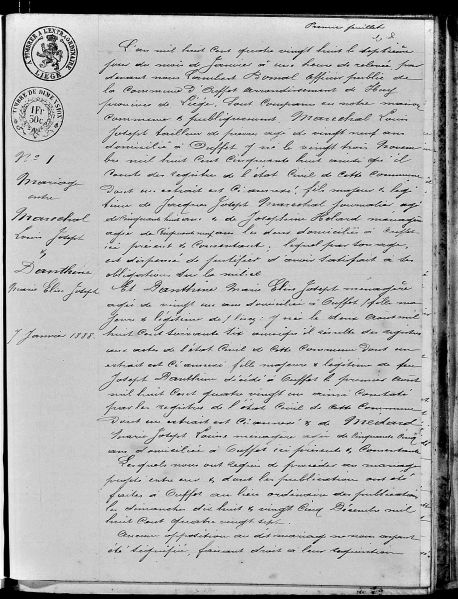 Premier feuillet
A TIMBRER A L'EXTRAORDINAIRE
LIEGE
TIMBRE DE DIMENSION
1 Fr
50c
L'an mil huit cent quatre vingt huit le septième
jour du mois de Janvier à une heure de relevée par
devant nous Bomal Officier public de
la Commune d'Ouffet arrondissement de Huy
province de Liège, sont comparus en notre maison
Commune & publiquement, Marechal Louis
Joseph tailleur de pierres agé de vingt neuf ans
domicilié à Ouffet & né le vingt trois Novem
bre mil huit cent cinquante huit ainsi qu'il
conste des registres de l'état civil de cette commune
dont un extrait est ci annexé; fils majeur & légi
time de Jacques Joseph Marechal journalier agé
de cinquante & de Josephine menagère
agée de cinquante ans les deux domiciliés à Ouffet
ici présents & consentants; lequel par son age,
est dispensé de justifier d'avoir satisfait à ses
obligations sur la milice
Et Danthine Marie Elise Joseph menagère
agée de vingt un ans domiciliée à Ouffet, fille ma
jeure & née le deux Aout mil
huit cent soixante six ainsi qu'il résulte des registres
aux actes de l'état civil de cette commune dont un
extrait est ci annexé fille majeure & légitime de feu
Joseph Danthine décédé à Ouffet le premier Aout
mil huit cent quatre vingt un ainsi constaté
par les registres de l'état civil de cette commune
dont un extrait est ci annexé & de
Marie Joseph menagère agée de cinquante cinq
ans domiciliée à Ouffet ici présente & consentante
Lesquels nous ont requis de procéder au mariage
projeté entre eux & dont les publications ont été
faites à Ouffet au lieu ordinaire des publications
les dimanches dix huit & vingt cinq Décembre mil
huit cent quatre vingt sept.
Aucune opposition au dit mariage ne nous ayant
été signifiée, faisant droit à leur réquisition
No 1
Mariage
entre
Marechal
Louis Joseph
&
Danthine
Marie Elise Joseph
7 Janvier 1888.